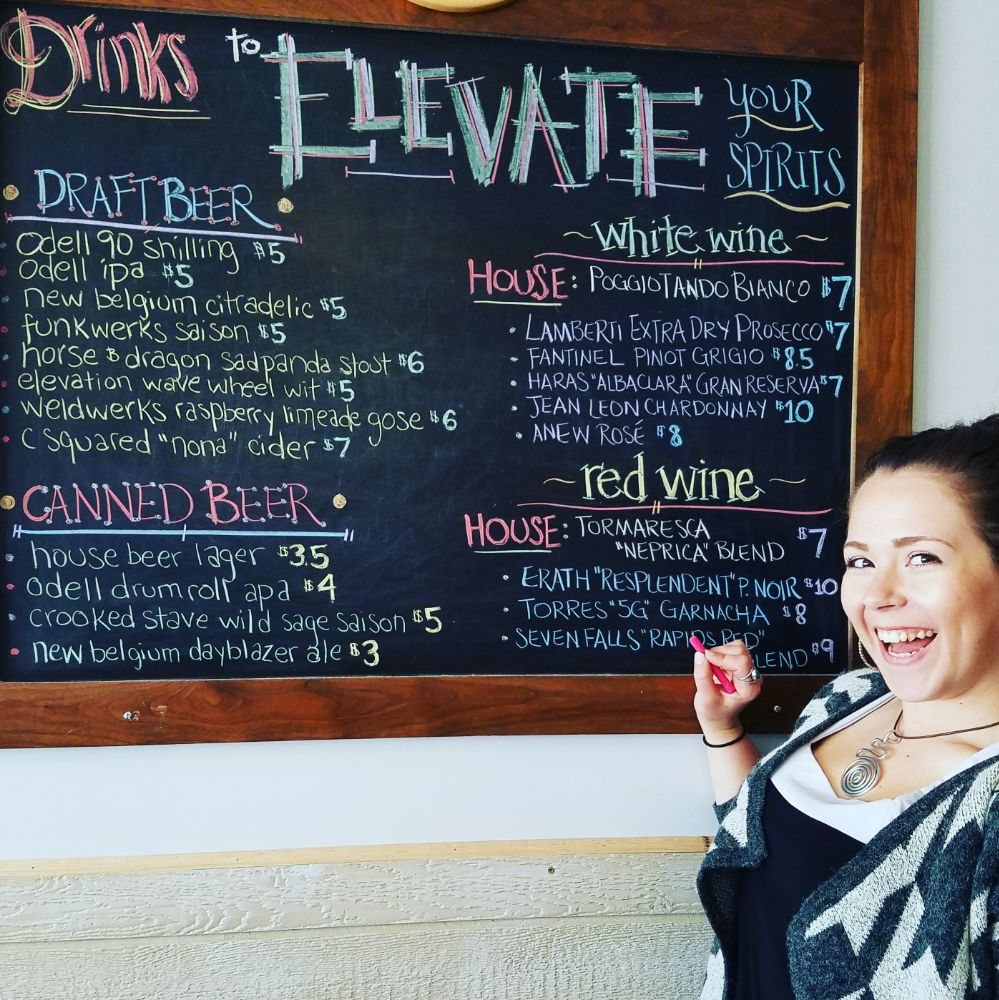 Drinks to ELEVATE YOUR SPIRITS
DRAFT BEER
odell 90 shilling $5
odell ipa $5
new belgium citradelic $5
funkwerks saison $5
horse & dragon sad panda stout $6
elevation wave wheel wit $5
weldwerks raspberry limeade gose $6
c squared "nona" cider $7
CANNED BEER
house beer lager $3.5
odell drumroll apa $4
crooked stave wild sage saison $5
new belgium dayblazer ale $3
~white wine~
HOUSE: POGGIOTANDO BIANCO $7
• LAMBERTI EXTRA DRY PROSECCO $7
• FANTINEL PINOT GRIGIO $8.5
• HARAS "ALBACLARA" GRAN RESERVA $7
• JEAN LEON CHARDONNAY $10
• ANEW ROSÉ $8
~red wine~
HOUSE: TORMARESCA
"NEPRICA" BLEND $7
• ERATH "RESPLENDENT" P. NOIR $10
• TORRES "5G" GARNACHA $8
• SEVEN FALLS "RAPIDS RED"
BLEND $9